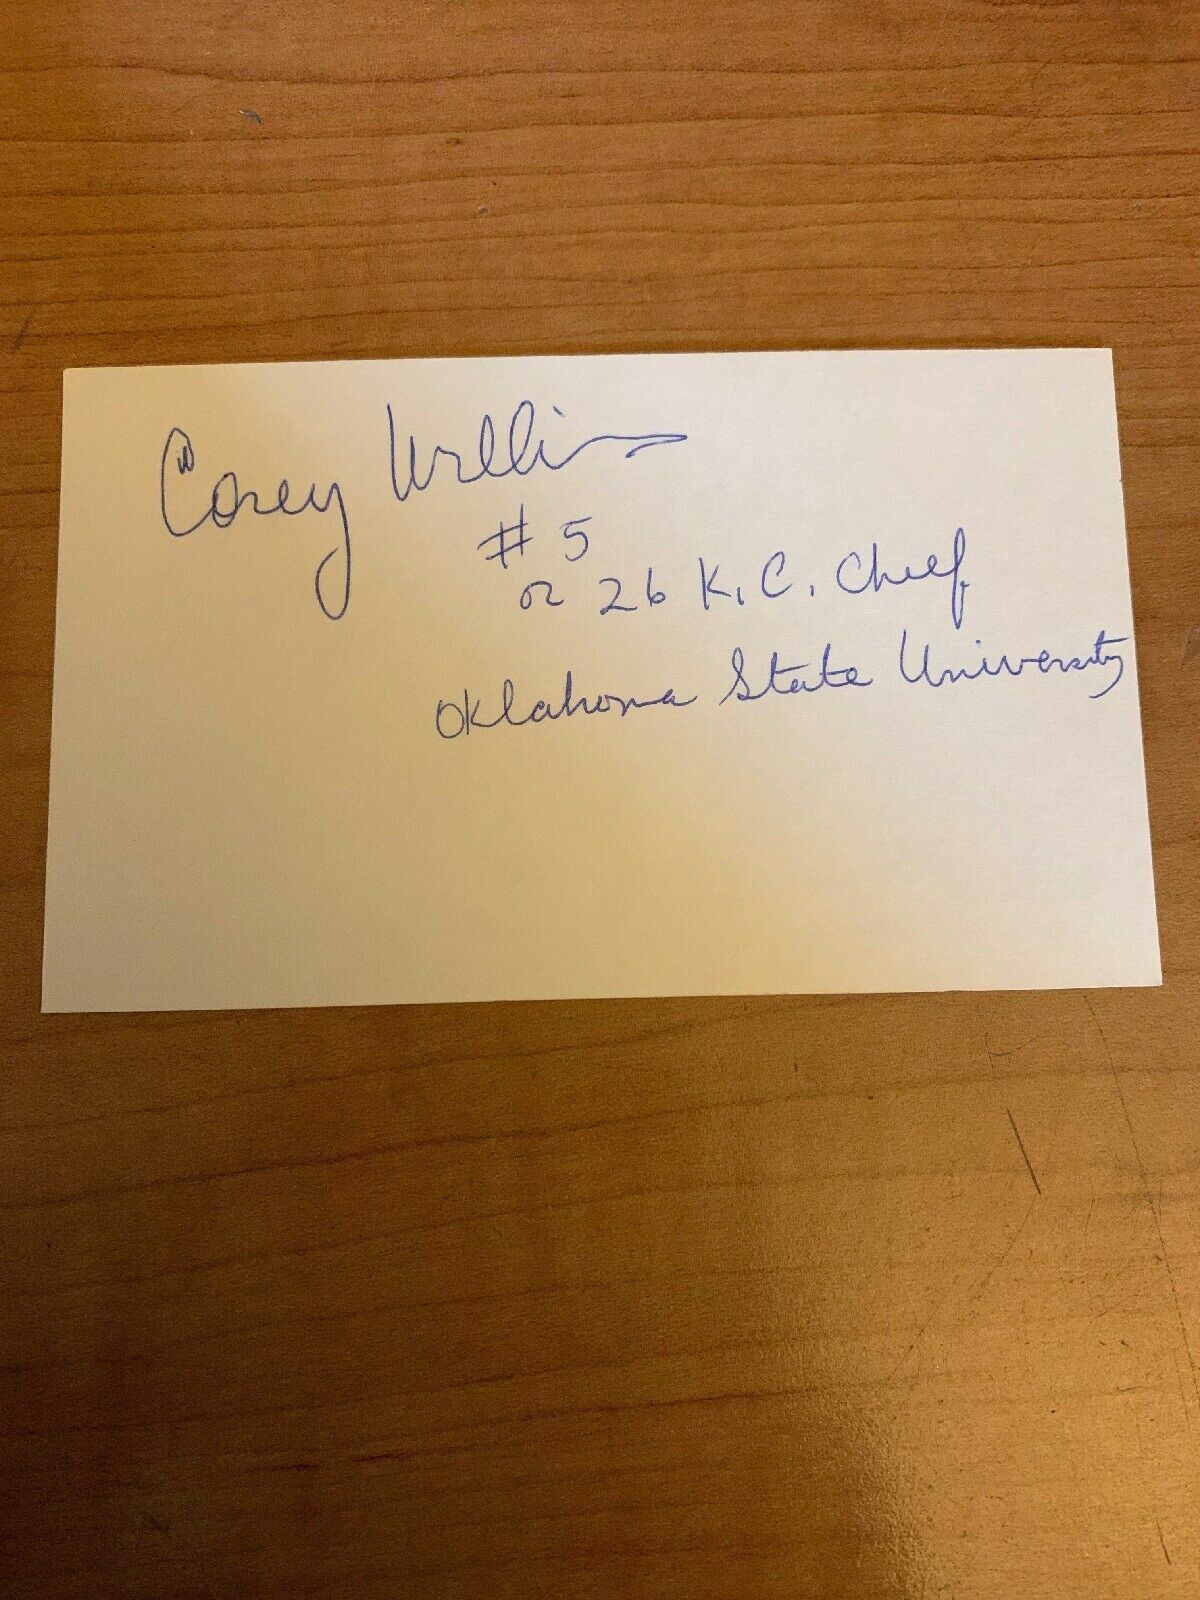 Corey Williams
# 5
or 26 K.C. Chief
Oklahoma State University